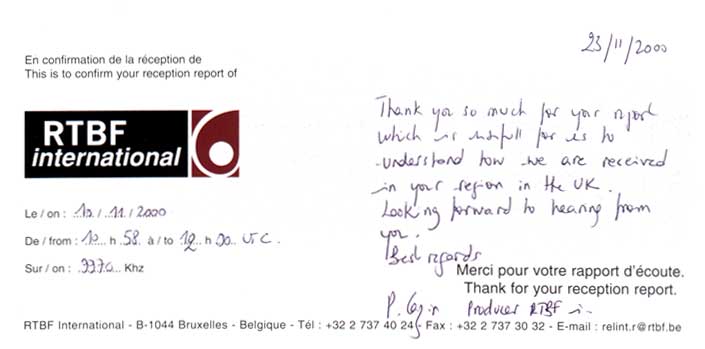 23/11/2000
En confirmation de la réception de
This is to confirm your reception report of
RTBF
international
Thank you so much for your report
which is usefull for us to
understand how we are received
in your region in the UK.
Looking forward to hearing from
you.
Best regards
Le / on : 12 / 11 / 2000
De / from : h 58 à / to h 00 UTC.
Sur / on : 9970 Khz
Merci pour votre rapport d'écoute.
Thank for your reception report.
P. Producer RTBF in
RTBF International - B-1044 Bruxelles - Belgique - Tél : +32 2 737 40 24 - Fax : +32 2 737 30 32 - E-mail : relint.r@rtbf.be